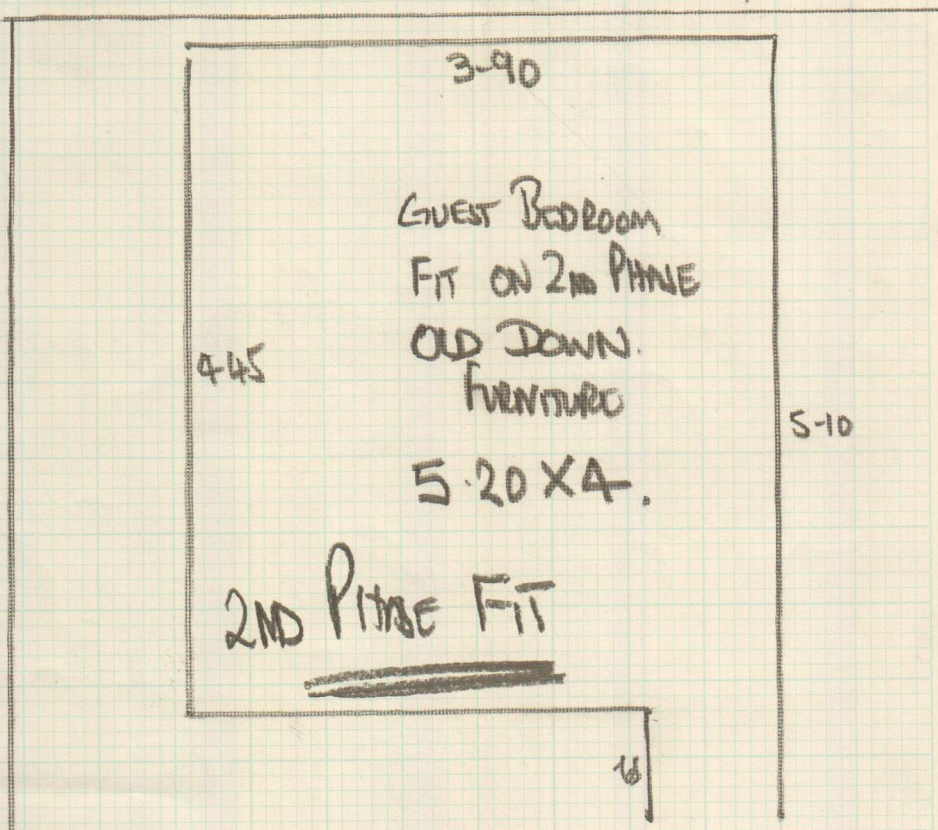 3-90
GUEST BEDROOM
FIT ON 2ND PHASE
OLD DOWN.
FURNITURE
4-45
5-10
5.20 X 4.
2ND PHASE FIT